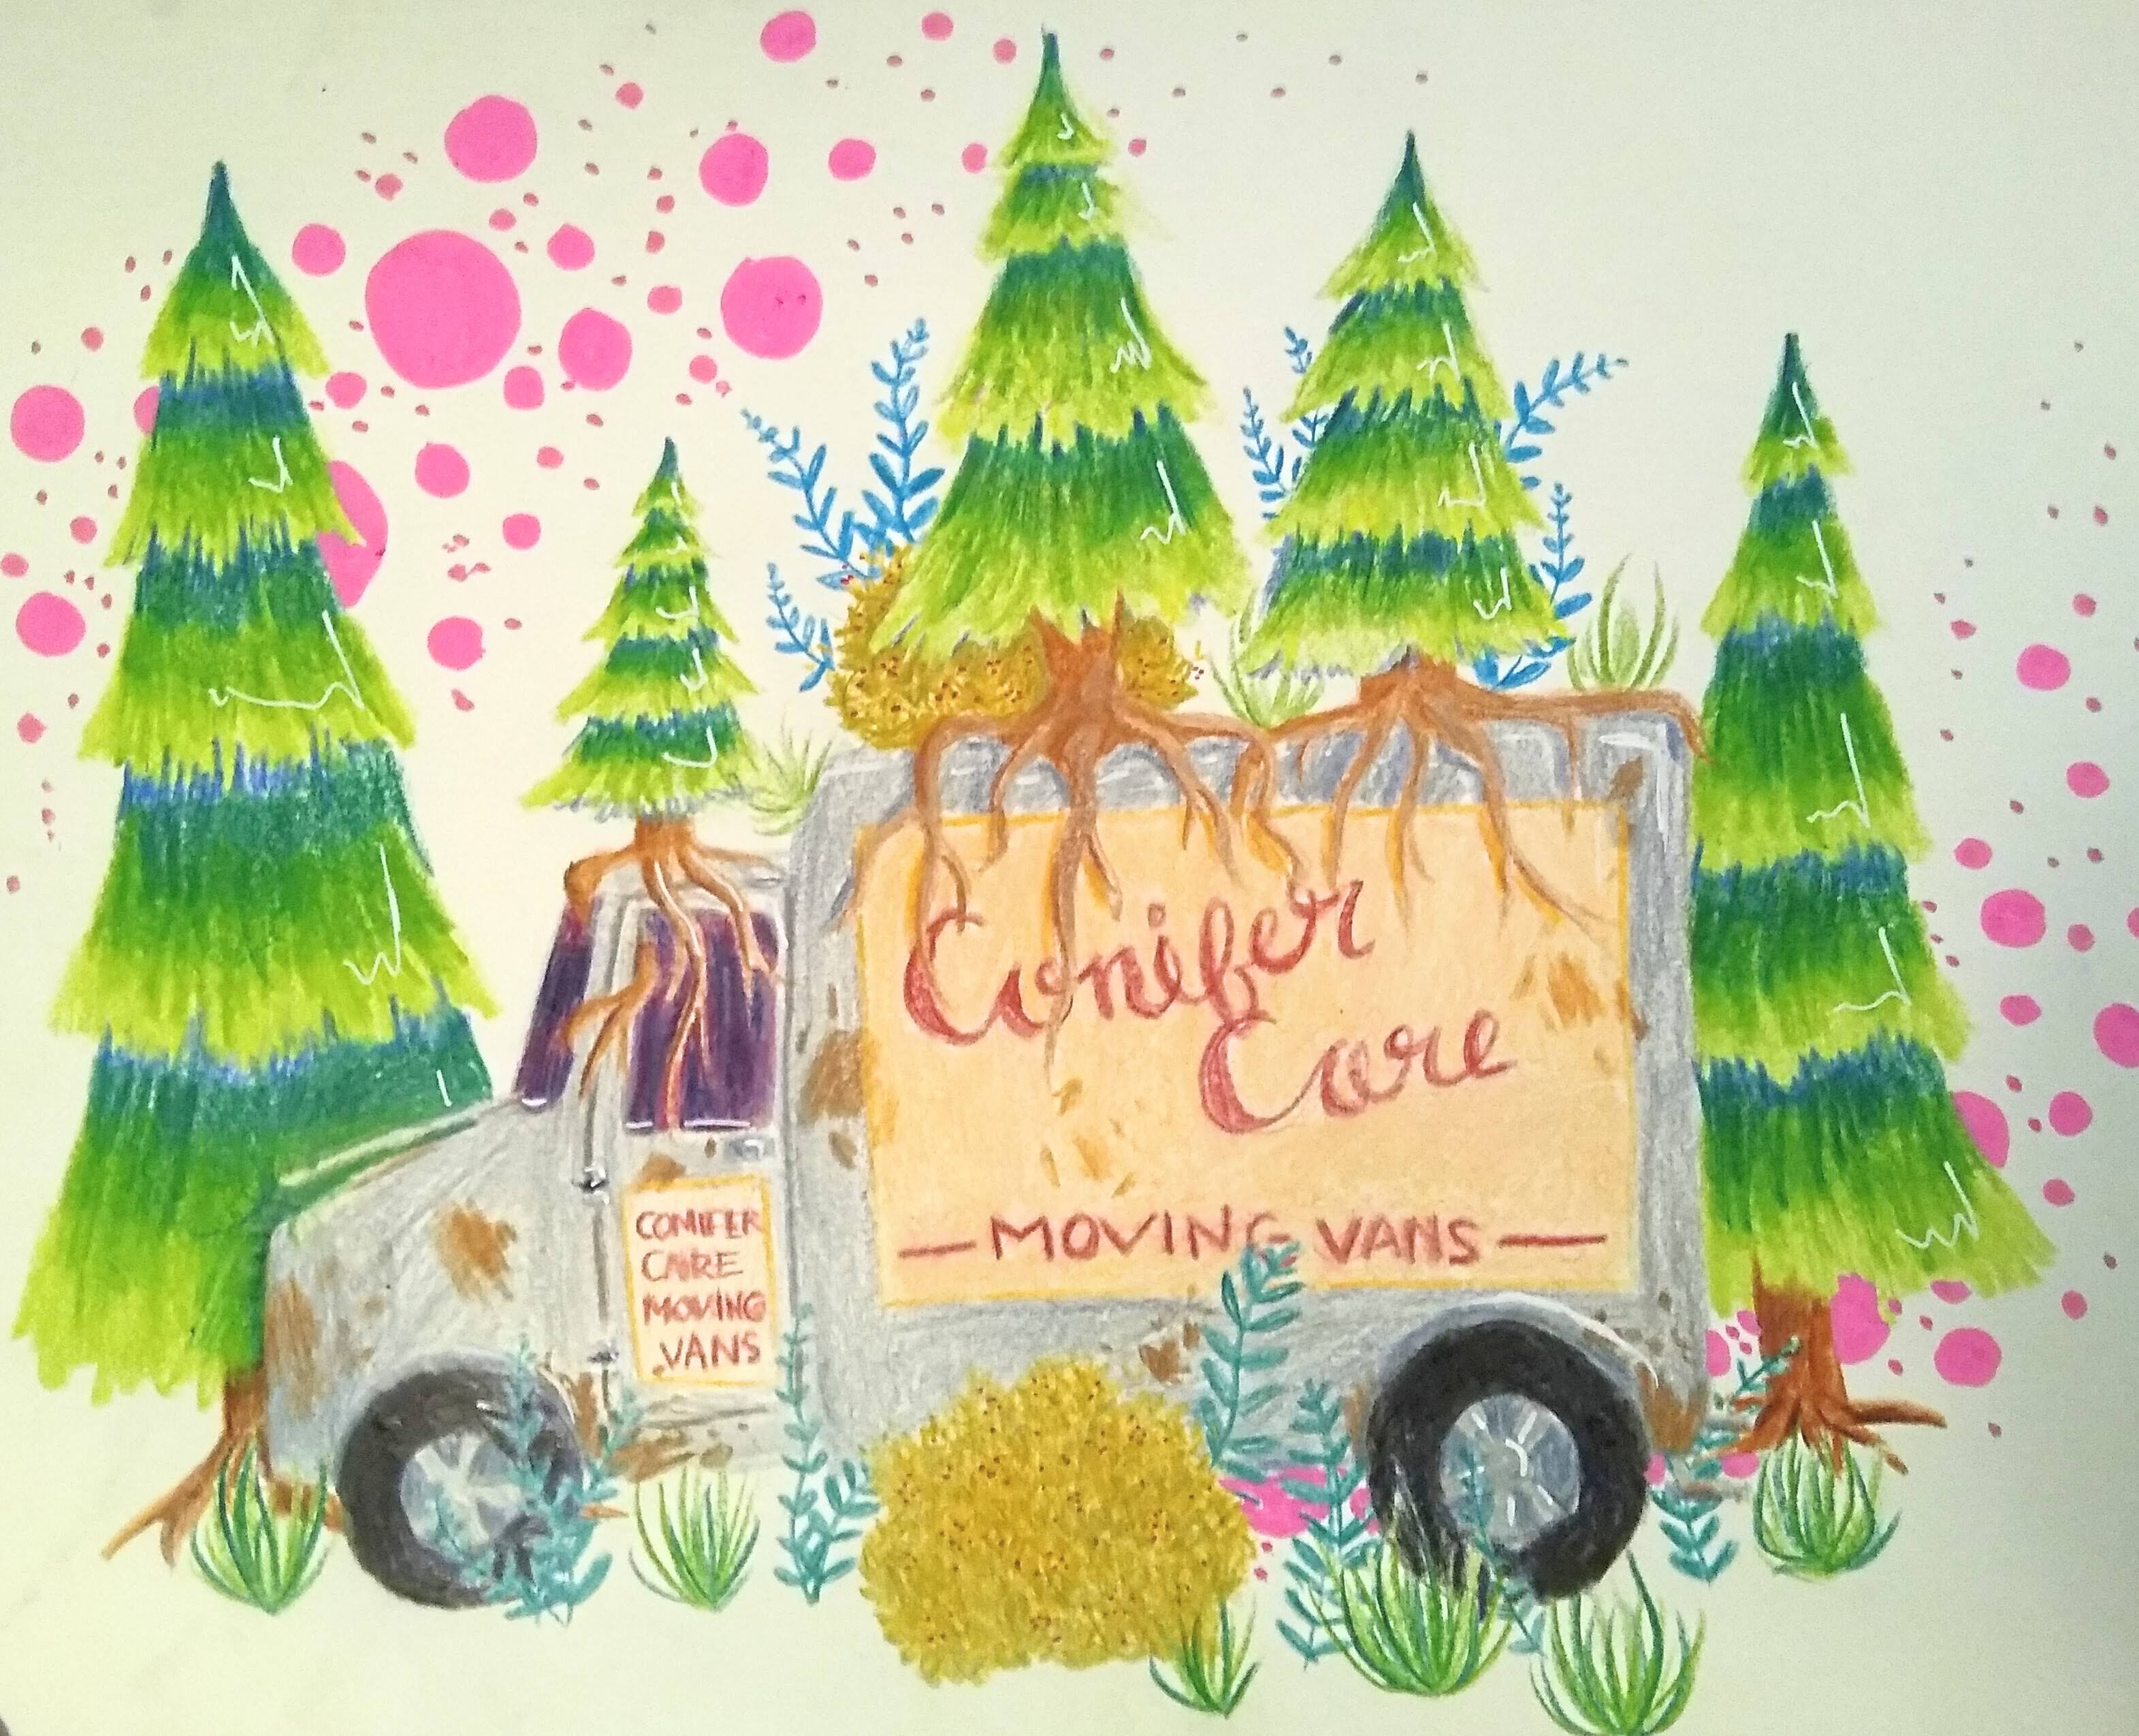 Conifer
Care
— MOVING VANS —
CONIFER
CARE
MOVING
VANS